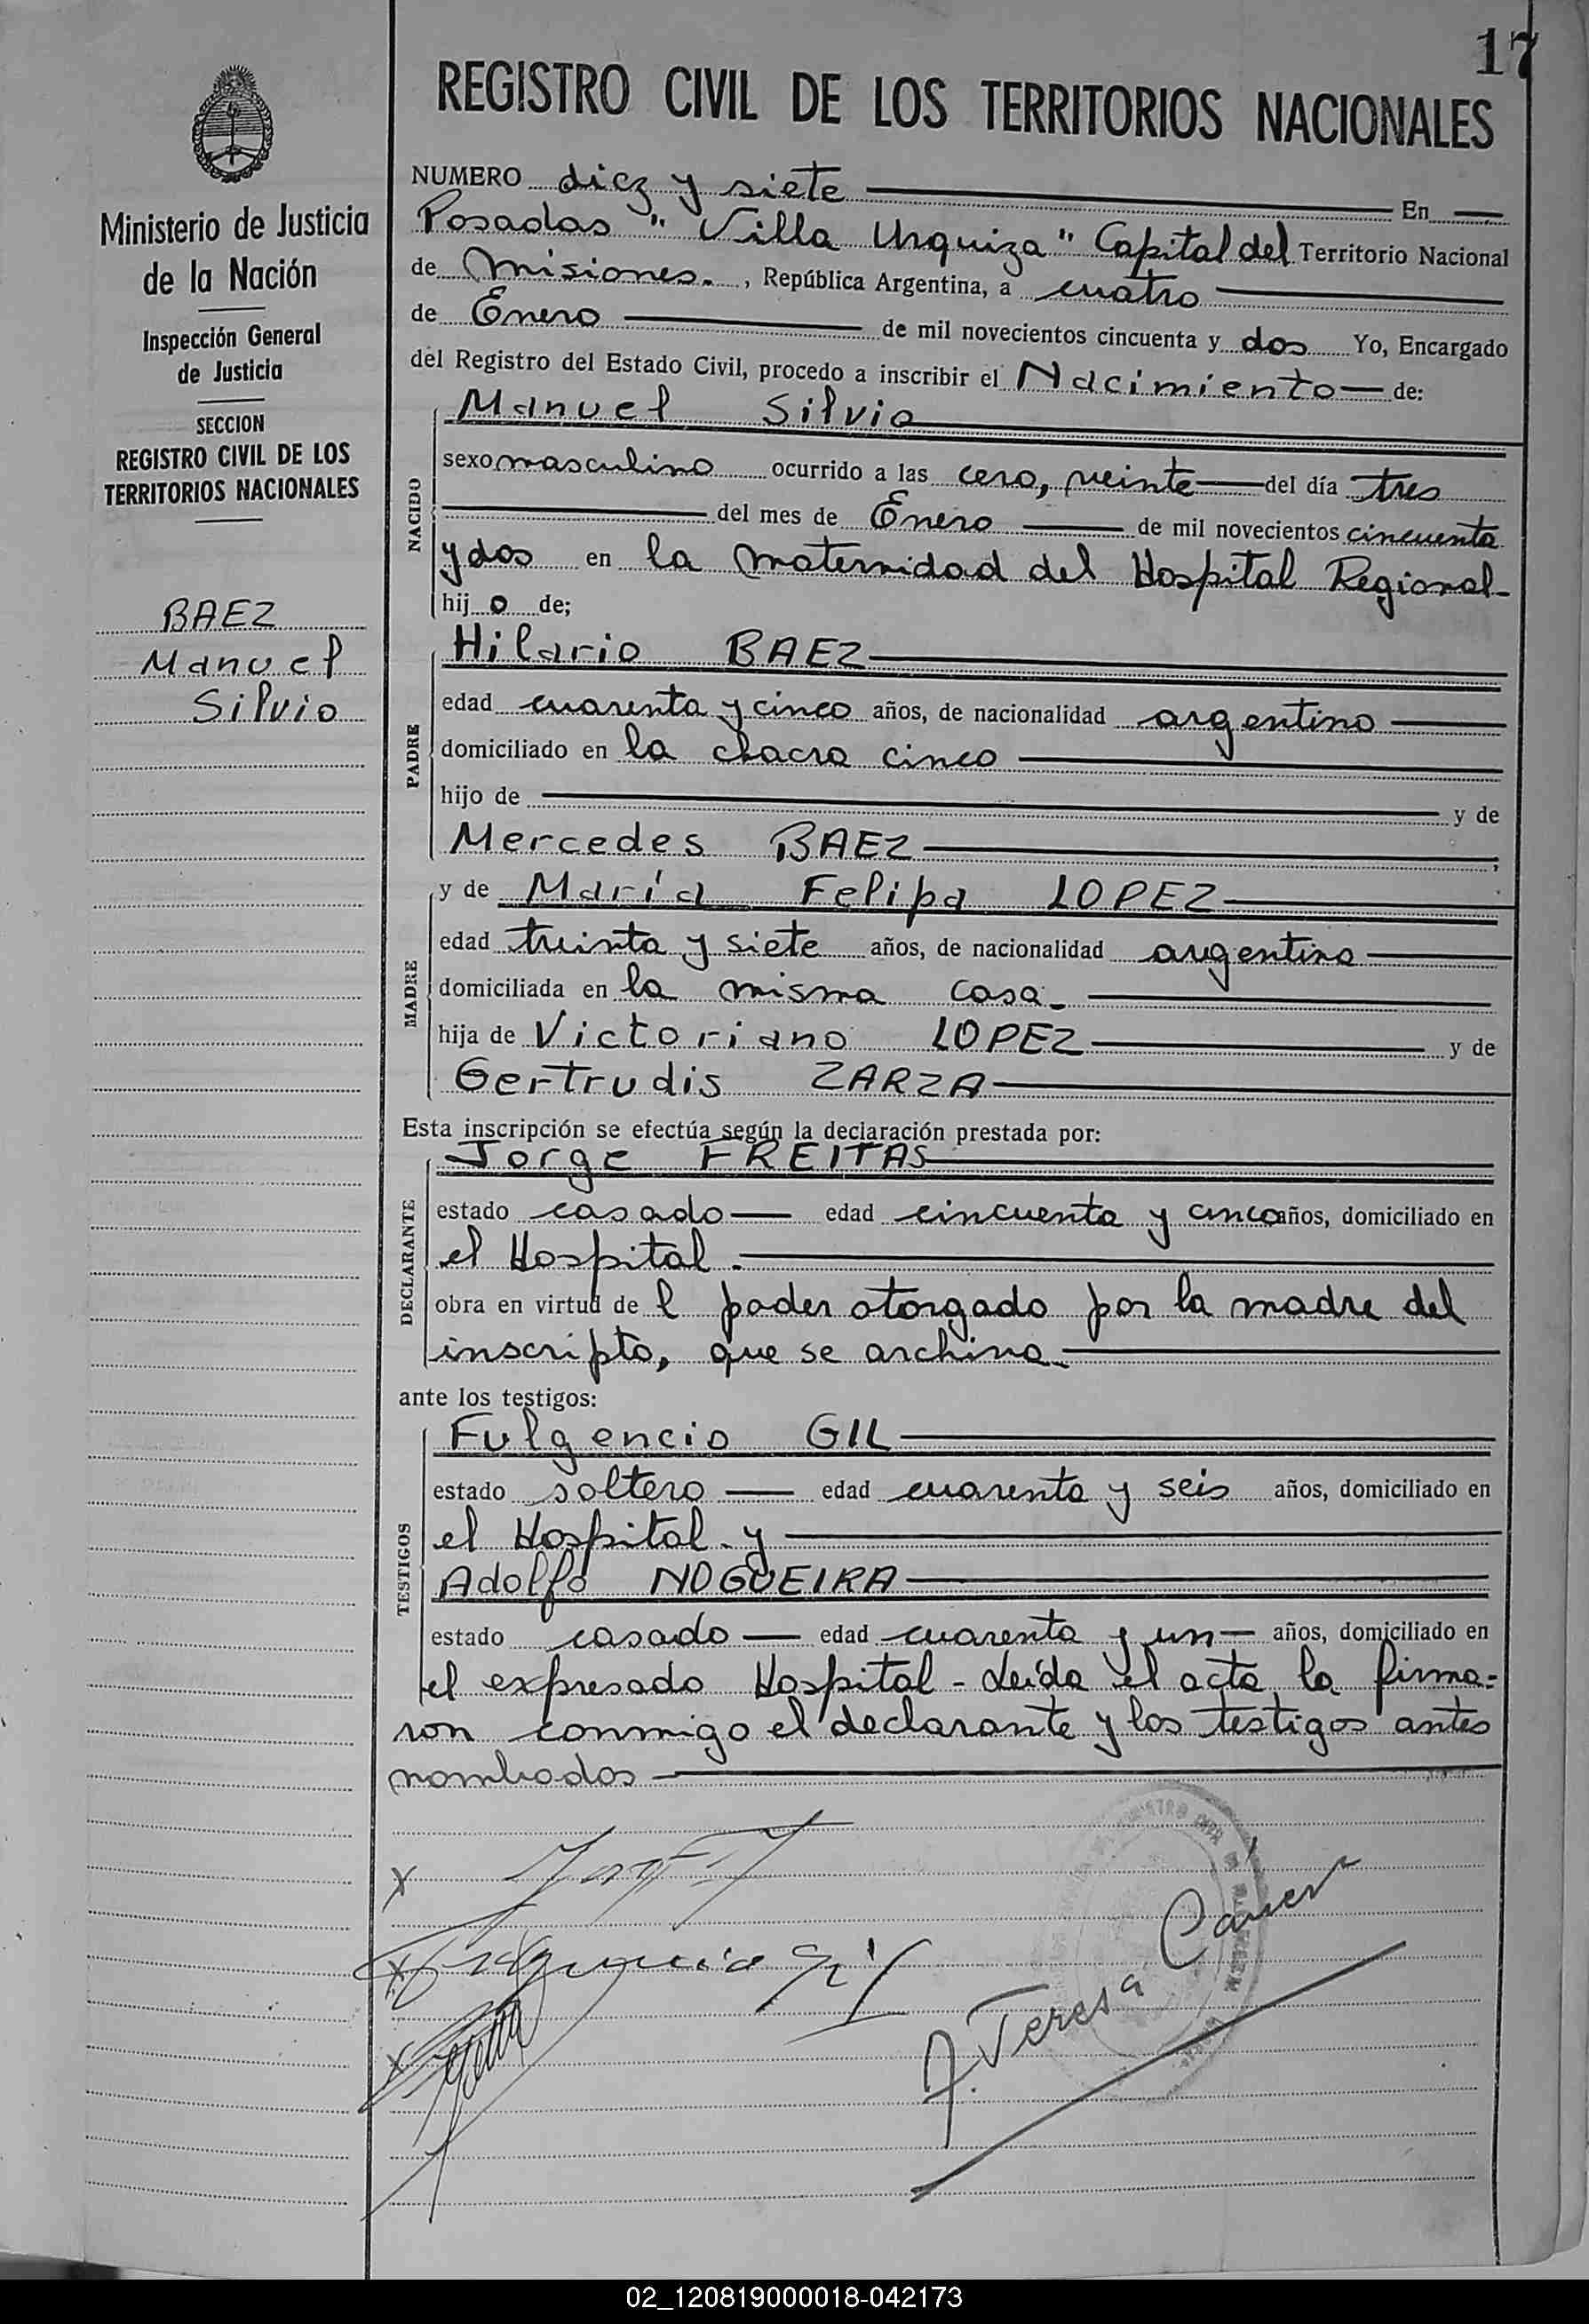 17
REGISTRO CIVIL DE LOS TERRITORIOS NACIONALES
Ministerio de Justicia
de la Nación
Inspección General
de Justicia
SECCION
REGISTRO CIVIL DE LOS
TERRITORIOS NACIONALES
BAEZ
Manuel
Silvio
NUMERO diez y siete En
Posadas "Villa Urquiza" Capital del Territorio Nacional
de Misiones., República Argentina, a cuatro
de Enero de mil novecientos cincuenta y dos Yo, Encargado
del Registro del Estado Civil, procedo a inscribir el Nacimiento de:
NACIDO
Manuel Silvio
sexo masculino ocurrido a las cero, veinte del día tres
del mes de Enero de mil novecientos cincuenta
y dos en la maternidad del Hospital Regional-
hijo de;
PADRE
Hilario BAEZ
edad cuarenta y cinco años, de nacionalidad argentino
domiciliado en la chacra cinco
hijo de y de
Mercedes BAEZ ;
MADRE
y de María Felipa LOPEZ
edad treinta y siete años, de nacionalidad argentina
domiciliada en la misma casa.
hija de Victoriano LOPEZ y de
Gertrudis ZARZA
Esta inscripción se efectúa según la declaración prestada por:
DECLARANTE
Jorge FREITAS
estado casado edad cincuenta y cinco años, domiciliado en
el Hospital.
obra en virtud de l poder otorgado por la madre del
inscripto, que se archiva.
ante los testigos:
TESTIGOS
Fulgencio GIL
estado soltero edad cuarenta y seis años, domiciliado en
el Hospital. y
Adolfo NOGUEIRA
estado casado edad cuarenta y un años, domiciliado en
el expresado Hospital - Leída el acta la firma=
ron conmigo el declarante y los testigos antes
nombrados
Fulgencio Gil
A. Teresa
02_120819000018-042173